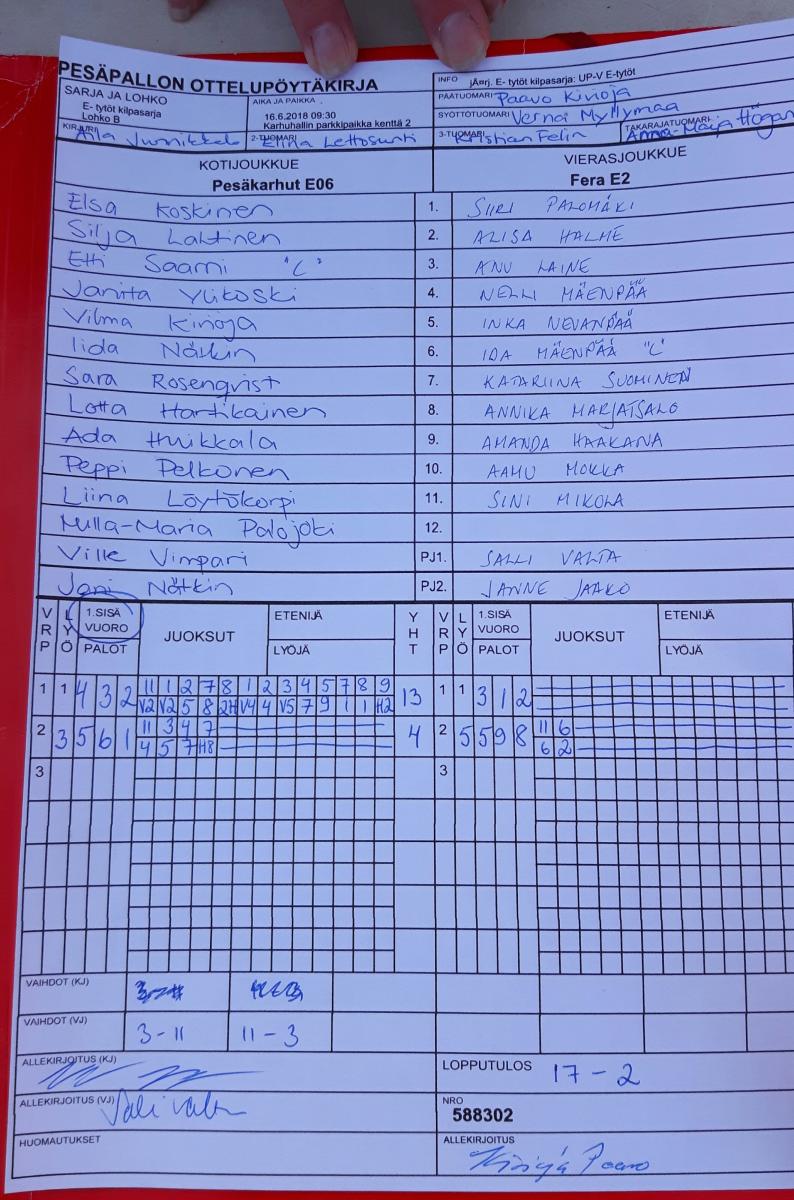 PESÄPALLON OTTELUPÖYTÄKIRJA
INFO jÄ¤rj. E- tytöt kilpasarja: UP-V E-tytöt
SARJA JA LOHKO
E- tytöt kilpasarja
Lohko B
AIKA JA PAIKKA
16.6.2018 09:30
Karhuhallin parkkipaikka kenttä 2
PÄÄTUOMARI Paavo Kivioja
SYÖTTÖTUOMARI Verna Myllymaa
KIRJURI
2-TUOMARI Elina
3-TUOMARI Kristian Felin
TAKARAJATUOMARI Anna-Maija Högman
KOTIJOUKKUE VIERASJOUKKUE
Pesäkarhut E06 Fera E2
Elsa Koskinen 1. SIIRI PALOMÄKI
Silja Lahtinen 2. ALISA HALME
Etti Saarni "C" 3. ANU LAINE
Janita Ylikoski 4. NELLI MÄENPÄÄ
Vilma Kivioja 5. INKA NEVANPÄÄ
Iida Nätkin 6. IDA MÄENPÄÄ "C"
Sara Rosenqvist 7. KATARIINA SUOMINEN
Lotta Hartikainen 8. ANNIKA MARJATSALO
Ada Huikkala 9. AMANDA HAAKANA
Peppi Pelkonen 10. AAMU MOKKA
Liina Löytökorpi 11. SINI MIKOLA
Milla-Maria Palojoki 12.
Ville Vimpari PJ1. SALLI VALTA
Joni Nätkin PJ2. JANNE JAAKO
VRP LYÖ 1.SISÄ VUORO PALOT JUOKSUT ETENIJÄ LYÖJÄ YHT VRP LYÖ 1.SISÄ VUORO PALOT JUOKSUT ETENIJÄ LYÖJÄ
1 1 4 3 2 11 1 2 7 8 1 2 3 4 5 7 8 9 13 1 1 3 1 2
V2 V2 5 8 2H V4 4 V5 7 9 1 1 H2
2 3 5 6 1 11 3 4 7 4 2 5 5 9 8 11 6
4 5 7 H8 6 2
3 3
VAIHDOT (KJ)
VAIHDOT (VJ) 3-11 11-3
ALLEKIRJOITUS (KJ)
LOPPUTULOS 17-2
ALLEKIRJOITUS (VJ)
NRO
588302
HUOMAUTUKSET
ALLEKIRJOITUS Kivioja Paavo